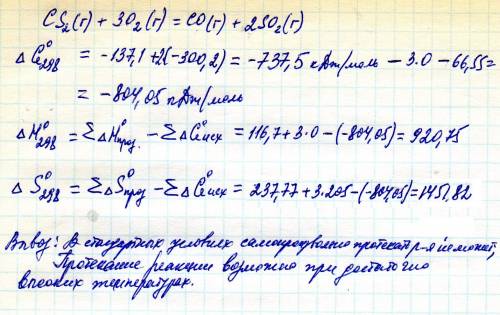 CS₂(г) + 3O₂(г) = CO(г) + 2SO₂(г)
ΔG°₂₉₈ = -137,1 + 2(-300,2) = -737,5 кДж/моль - 3.0 - 66,55 =
= -804,05 кДж/моль
ΔH°₂₉₈ = ΣΔH°прод. - ΣΔG°исх = 116,7 + 3·0 - (-804,05) = 920,75
ΔS°₂₉₈ = ΣΔS°прод - ΣΔG°исх = 237,77 + 3·205 - (-804,05) = 1451,82
Вывод: В стандартных условиях самопроизвольно протекать р-я не может,
Протекание реакции возможно при достаточно
высоких температурах.